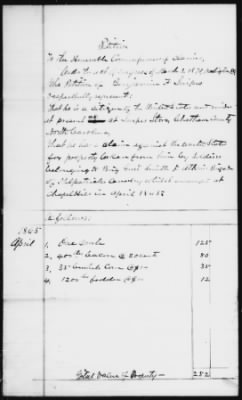 Petition
To the Honorable Commissioners of Claims,
Under the act of Congress of March 3, 1871,
The Petition of Benjamin F. Snipes
respectfully represents:
That he is a citizen of the United States and resides
at present at Snipes Store, Chatham County
North Carolina.
That he has a claim against the United States
for property taken from him by soldiers
belonging to Brig Genl Smith D. Atkins Brigade
Kilpatricks Cavalry, whilst encamped at
Chapel Hill in April 1865
as follows:
1865
April 1. One Mule 125
2. 400 lbs Bacon @ 20 cents 80
3. 35 bushels Corn @ 35
4. 1200 lbs fodder @ 12
Total Value of Property — 252